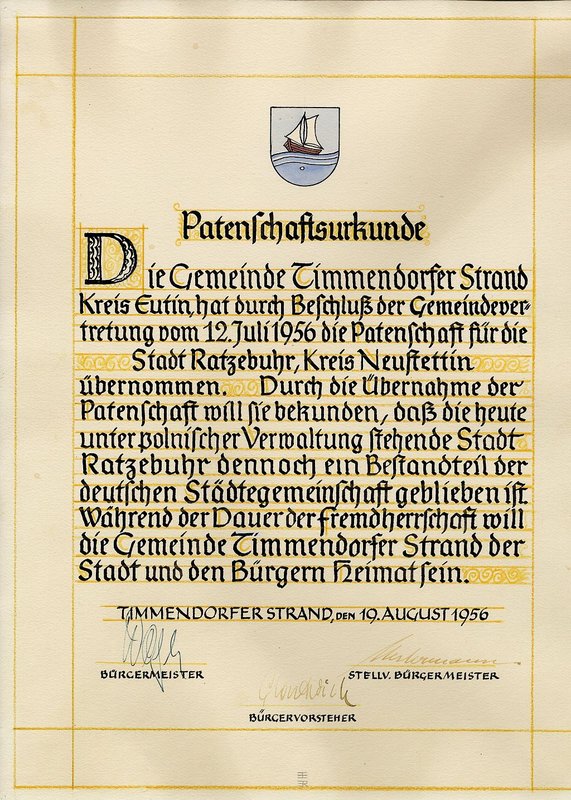 Patenschaftsurkunde
Die Gemeinde Timmendorfer Strand
Kreis Eutin, hat durch Beschluß der Gemeindever-
tretung vom 12. Juli 1956 die Patenschaft für die
Stadt Ratzebuhr, Kreis Neustettin
übernommen. Durch die Übernahme der
Patenschaft will sie bekunden, daß die heute
unter polnischer Verwaltung stehende Stadt
Ratzebuhr dennoch ein Bestandteil der
deutschen Städtegemeinschaft geblieben ist.
Während der Dauer der Fremdherrschaft will
die Gemeinde Timmendorfer Strand der
Stadt und den Bürgern Heimat sein.
TIMMENDORFER STRAND, DEN 19. AUGUST 1956
BÜRGERMEISTER
STELLV. BÜRGERMEISTER
BÜRGERVORSTEHER